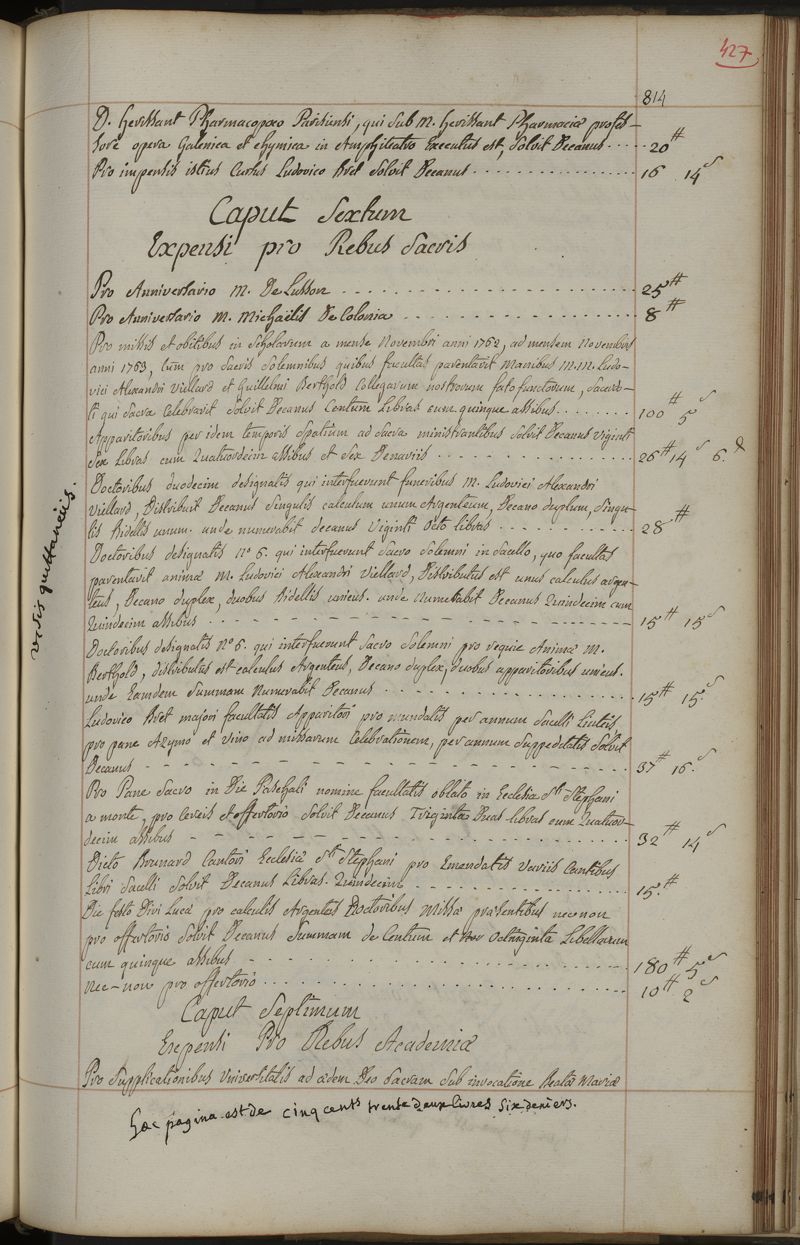 427
814
D. Herissant Pharmacopœo Parisiensi, qui sub M. Herissant Pharmaciæ profes-
sore opera Galenica et chymica in Amphiteatro Executus est, Solvit Decanus 20 ₶
Pro impensis istius Cursus Ludovico Bret Solvit Decanus 16 14 s
Caput Sextum
Expensi pro Rebus Sacris
Pro Anniversario M. De Lusson 25 ₶
Pro Anniversario M. Michaëlis De Colonia 8 ₶
Pro missis et obitibus in Scholarum a mense Novembri anni 1762, ad mensem Novembris
anni 1763, tum pro Sacris Solemnibus quibus facultas parentavit Manibus M.M. Ludo-
vici Alexandri Viellard et Guillelmi Berthold Collegarum nostrorum fato functorum, Sacerdo-
ti qui Sacra Celebravit Solvit Decanus Centum Libras cum quinque assibus 100 ₶ 5 s
Apparitoribus per idem temporis Spatium ad Sacra ministrantibus Solvit Decanus Viginti
Sex Libras cum Quatuordecim assibus et Sex Denariis 26 ₶ 14 s 6 d
Doctoribus duodecim designatis qui interfuerunt funeribus M. Ludovici Alexandri
Viellard, Distribuit Decanus Singulis calculum unum Argenteum, Decano duplum, Singu-
lis Bidellis unum. unde numerabit decanus Viginti Octo libras 28 ₶
Doctoribus designatis n° 6. qui interfuerunt Sacro Solemni in Sacello, quo facultas
parentavit animæ M. Ludovici Alexandri Viellard, Distributus est unus calculus argen-
teus, Decano duplex, duobus Bidellis unicus. unde Numerabit Decanus Quindecim cum
Quindecim assibus 15 ₶ 15 s
Doctoribus designatis n° 6. qui interfuerunt Sacro Solemni pro requie Animæ M.
Berthold, distributus est calculus Argenteus, Decano duplex, duobus apparitoribus unicus.
unde Eamdem Summam Numerabit Decanus 15 ₶ 15 s
Ludovico Bret majori facultatis Apparitori pro mundatis per annum Sacelli Linteis
pro pane Azymo et Vino ad missarum Celebrationem, per annum Suppeditatis Solvit
Decanus 37 ₶ 16 s
Pro Pane Sacro in Die Paschali nomine facultatis oblato in Ecclesia Sti Stephani
a monte, pro Cereis et offertorio Solvit Decanus Triginta Duas libras cum Quatuor-
decim assibus 32 ₶ 14 s
Dicto Bornard Cantori Ecclesiæ Sti Stephani pro Emendatis Variis Cantibus
Libri Sacelli Solvit Decanus Libras Quindecim 15 ₶
Die festo Divi Lucæ pro calculis Argenteis Doctoribus Missæ præsentibus necnon
pro offertorio Solvit Decanus Summam de Centum et Octoginta Libellarum
cum quinque assibus 180 ₶ 5 s
nec-non pro offertorio 10 ₶ 2 s
Caput Septimum
Expensi Pro Rebus Academiæ
Pro Supplicationibus Universitatis ad ædem Deo Sacram Sub invocatione Beatæ Mariæ
hæc pagina est de cinq cents trente deux livres Six deniers.
Visis quittanciis.